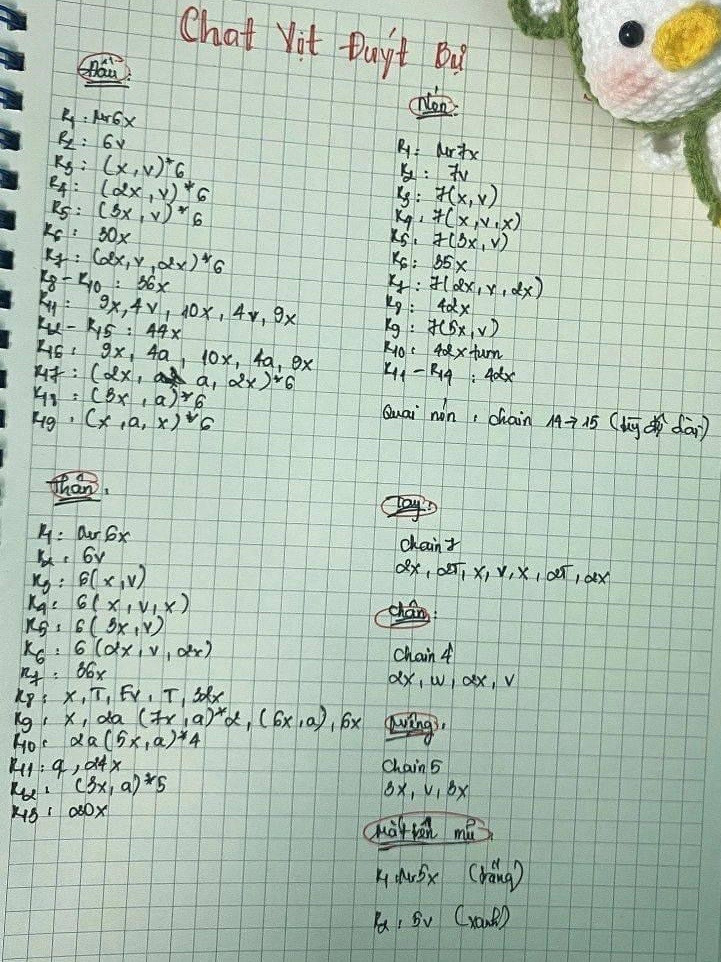 Chat Vịt Đuýt Bự
Đầu
R1 : Mr 6x
R2 : 6v
R3 : (x, v)*6
R4 : (2x, v)*6
R5 : (3x, v)*6
R6 : 30x
R7 : (2x, v, 2x)*6
R8 - R10 : 36x
R11 : 9x, 4v, 10x, 4v, 9x
R12 - R15 : 44x
R16 : 9x, 4a, 10x, 4a, 9x
R17 : (2x, a, 2x)*6
R18 : (3x, a)*6
R19 : (x, a, x)*6
Nón:
R1 : Mr 7x
R2 : 7v
R3 : 7(x, v)
R4 : 7(x, v, x)
R5 : 7(3x, v)
R6 : 35x
R7 : 7(2x, v, 2x)
R8 : 42x
R9 : 7(5x, v)
R10 : 42x turn
R11 - R14 : 42x
Quai nón : chain 14 → 15 (tùy độ dài)
Thân :
R1 : Mr 6x
R2 : 6v
R3 : 6(x, v)
R4 : 6(x, v, x)
R5 : 6(3x, v)
R6 : 6(2x, v, 2x)
R7 : 36x
R8 : x, T, Fv, T, 32x
R9 : x, 2a (7x, a)*2, (6x, a), 6x
R10 : 2a (5x, a)*4
R11 : a, 24x
R12 : (3x, a)*5
R13 : 20x
Tay :
Chain 7
2x, 2T, x, v, x, 2T, 2x
Chân :
Chain 4
2x, w, 2x, v
Miếng :
Chain 5
3x, v, 3x
Mắt trên mũ
R1 : Mr 5x (trắng)
R2 : 5v (xanh)